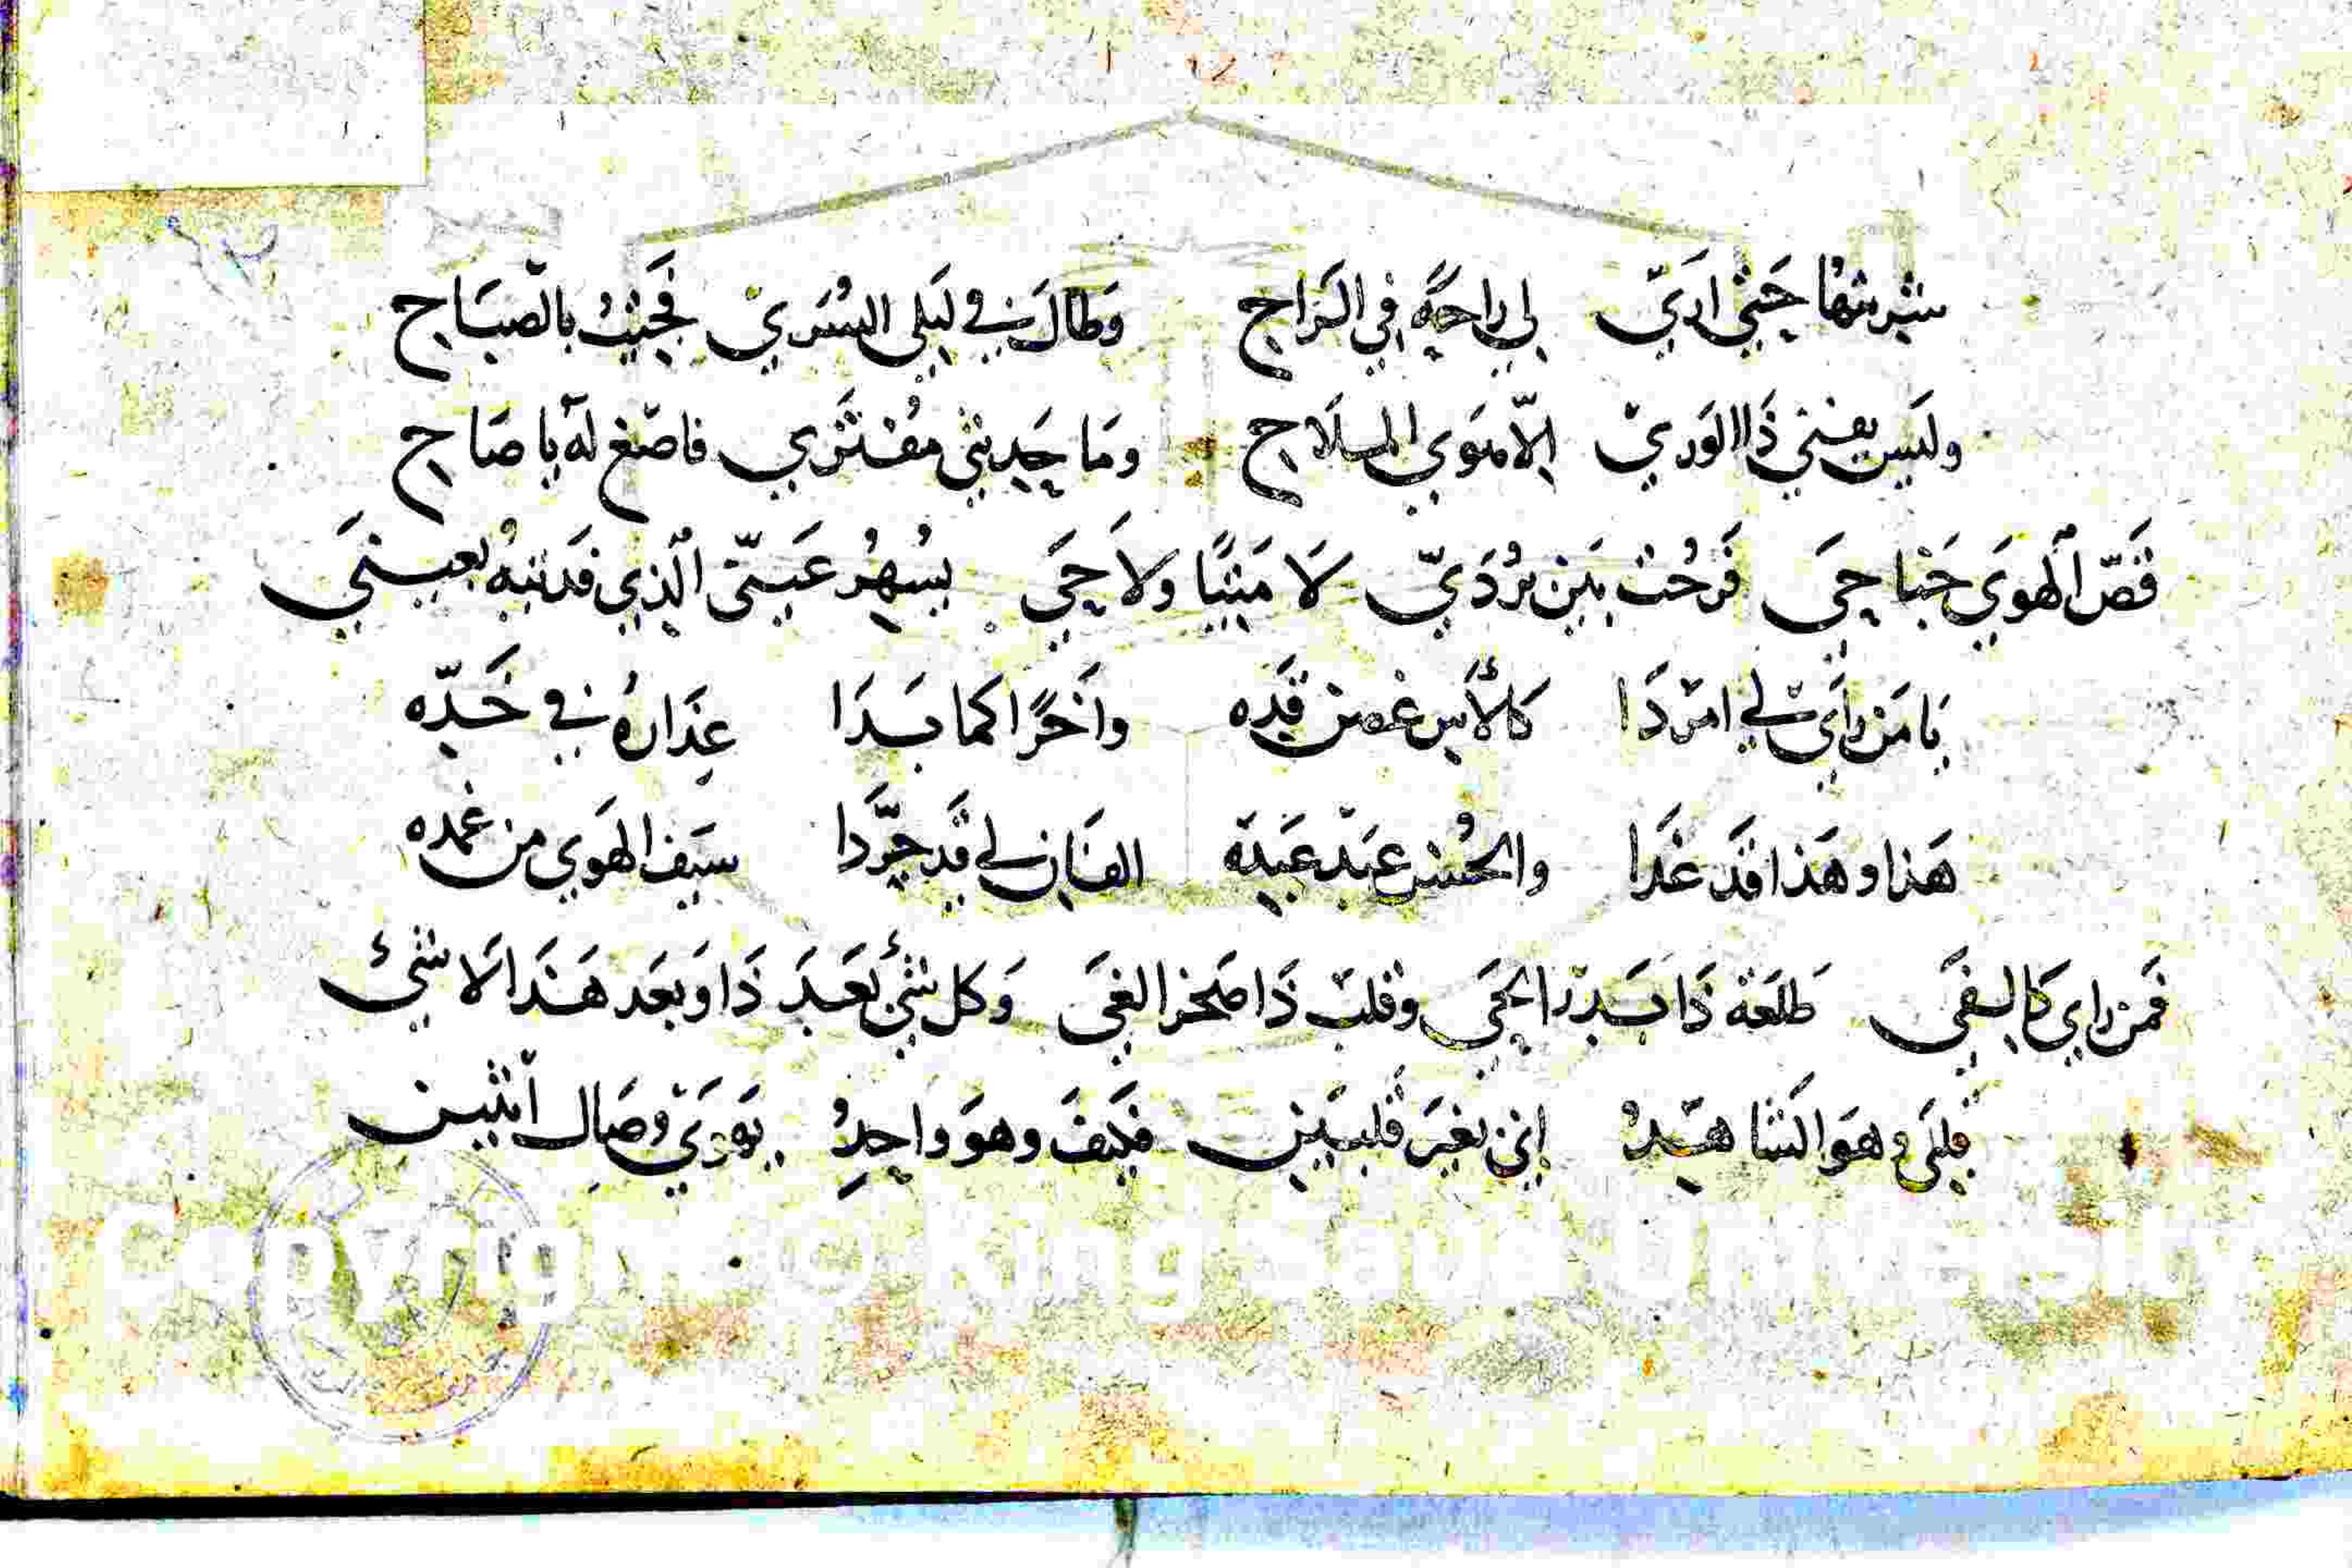 شربتها حَتى ارَيّ لى راحةً في الرَاح وَطالَ في لَيلى السُرَيْ فجَئتُ بالصّبَاح
ولَيس يفتى ذَا الوَريْ الّا هوَي الملَاح ومَا حَديثى مُفتَري فاصْغ لهَ يا صَاح
قَصّ الهويَ جَناحىَ فَرحُت بَين بُردَيّ لَا مَيتًا ولَا حَيَ يُسهرُ عَينّى الذِي قَد تيهُ بعينىَ
يَا مَن رَأي لي امرَدَا كالْأس غصن قَده واَخرًا كما بَدَا عِذَارهُ في خَدّه
هَذا وهَذا قَد غَدا والحُسْن عَبْد عَبده الفَان لي قَد جرَّدَا سيَف الهَوي من غمده
فَمن راي كالفىَ طلعَة ذَا بَدْر الحَى وقلبْ ذَا صَخر الغىَ وَكل شئ بَعدَ ذَا وبَعَد هَذَا لَا شئ
قلبَى وهوَ الشَاهدُ إنى بغيَر قلبَين فكَيفَ وهوَ واحِدُ يَهوَيْ وصَال اثنين
Copyright © King Saud University